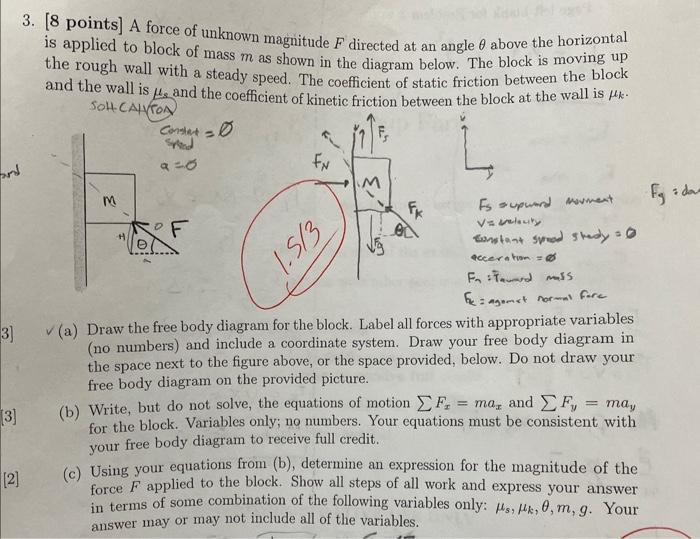 3. [8 points] A force of unknown magnitude F directed at an angle θ above the horizontal
is applied to block of mass m as shown in the diagram below. The block is moving up
the rough wall with a steady speed. The coefficient of static friction between the block
and the wall is μs and the coefficient of kinetic friction between the block at the wall is μk.
SOH CAH TOA
Constant = 0
speed
a = 0
M
F
H
θ
FN
Fs
M
FK
θ
Fg
1.5/3
Fs = upward movement
V = velocity
Constant speed steady = 0
acceration = 0
Fn = Toward mass
Fk = against normal force
Fg =
[3] (a) Draw the free body diagram for the block. Label all forces with appropriate variables
(no numbers) and include a coordinate system. Draw your free body diagram in
the space next to the figure above, or the space provided, below. Do not draw your
free body diagram on the provided picture.
[3] (b) Write, but do not solve, the equations of motion ∑ Fx = max and ∑ Fy = may
for the block. Variables only; no numbers. Your equations must be consistent with
your free body diagram to receive full credit.
[2] (c) Using your equations from (b), determine an expression for the magnitude of the
force F applied to the block. Show all steps of all work and express your answer
in terms of some combination of the following variables only: μs, μk, θ, m, g. Your
answer may or may not include all of the variables.